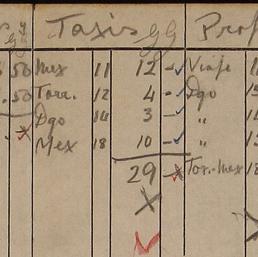 Taxis
50 Mex 11 12 - Viaje 1
.50 Torr. 12 4 - Dgo 1
Dgo 14 3 - " 1
Mex 18 10 - " 1
29 - Torr.-Mex 18